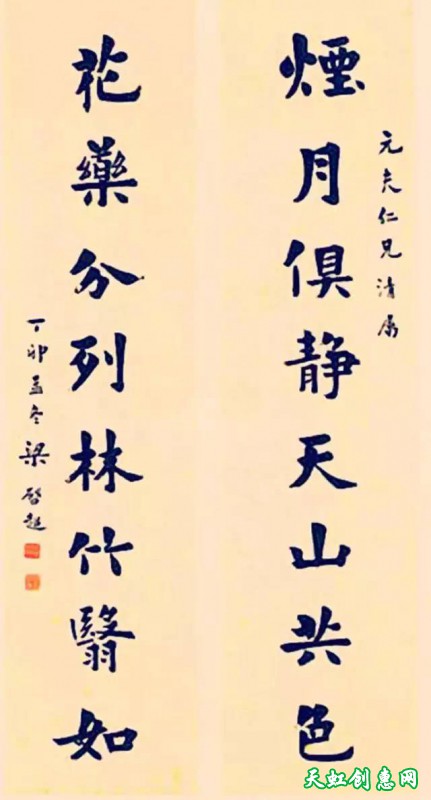 元夫仁兄清属
煙月俱静天山共色
花藥分列林竹翳如
丁卯孟冬梁啓超
天虹创惠网